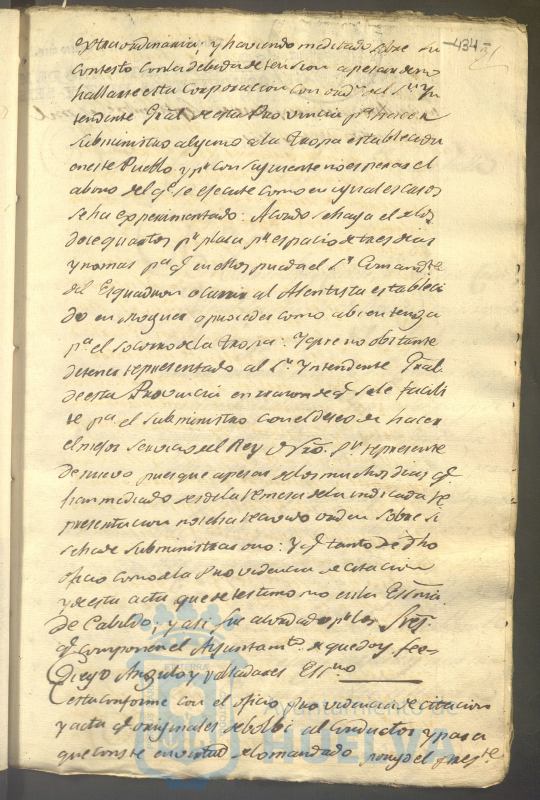 434
extraordinaria, y haviendo meditado sobre su
contesto con la debida detencion apesar de no
hallarse esta Corporacion con ordn. del Sr. Yn
tendente Gral de esta Provincia pa. hacer
subministro alguno a la tropa establecida
en este Pueblo y pr. consiguiente no esperar el
abono del qe. se ejecute como en iguales casos
se ha experimentado: Acordo se haga el de los
doce quartos pr. plaza pr. espacio de tres dias
y no mas pa. qe. en ellos pueda el Sr. Comandte.
del Esquadron ocurrir al Asentista estableci
do en Moguer o proceder como abien tenga
pa. el socorro de la tropa: Y que no obstante
de tener representado al Sr. Yntendente Gral
de esta Provincia en razon de qe. se le facili
te pa. el subministro con el deseo de hacer
el mejor servicio del Rey Nro. Sr. represente
de nuevo pues que apesar de los muchos dias qe.
han mediado desde la remesa de la indicada re
presentacion no se ha recivido orden sobre si
se ha de subministrar o no: Y qe. tanto de dho
oficio como de la Providencia de citacion
y de esta acta quede testimonio en la Essnia
de Cabildo; y asi fue acordado pr. los Sres.
qe. componen el Ayuntamto. de que doy fee=
Diego Angulo y Valladares Essno
esta conforme con el oficio Providencia de citacion
y acta qe. originales debolbi al conductor y para
que conste en virtud de lo mandado pongo el presete.
Ayuntamiento de
HUELVA